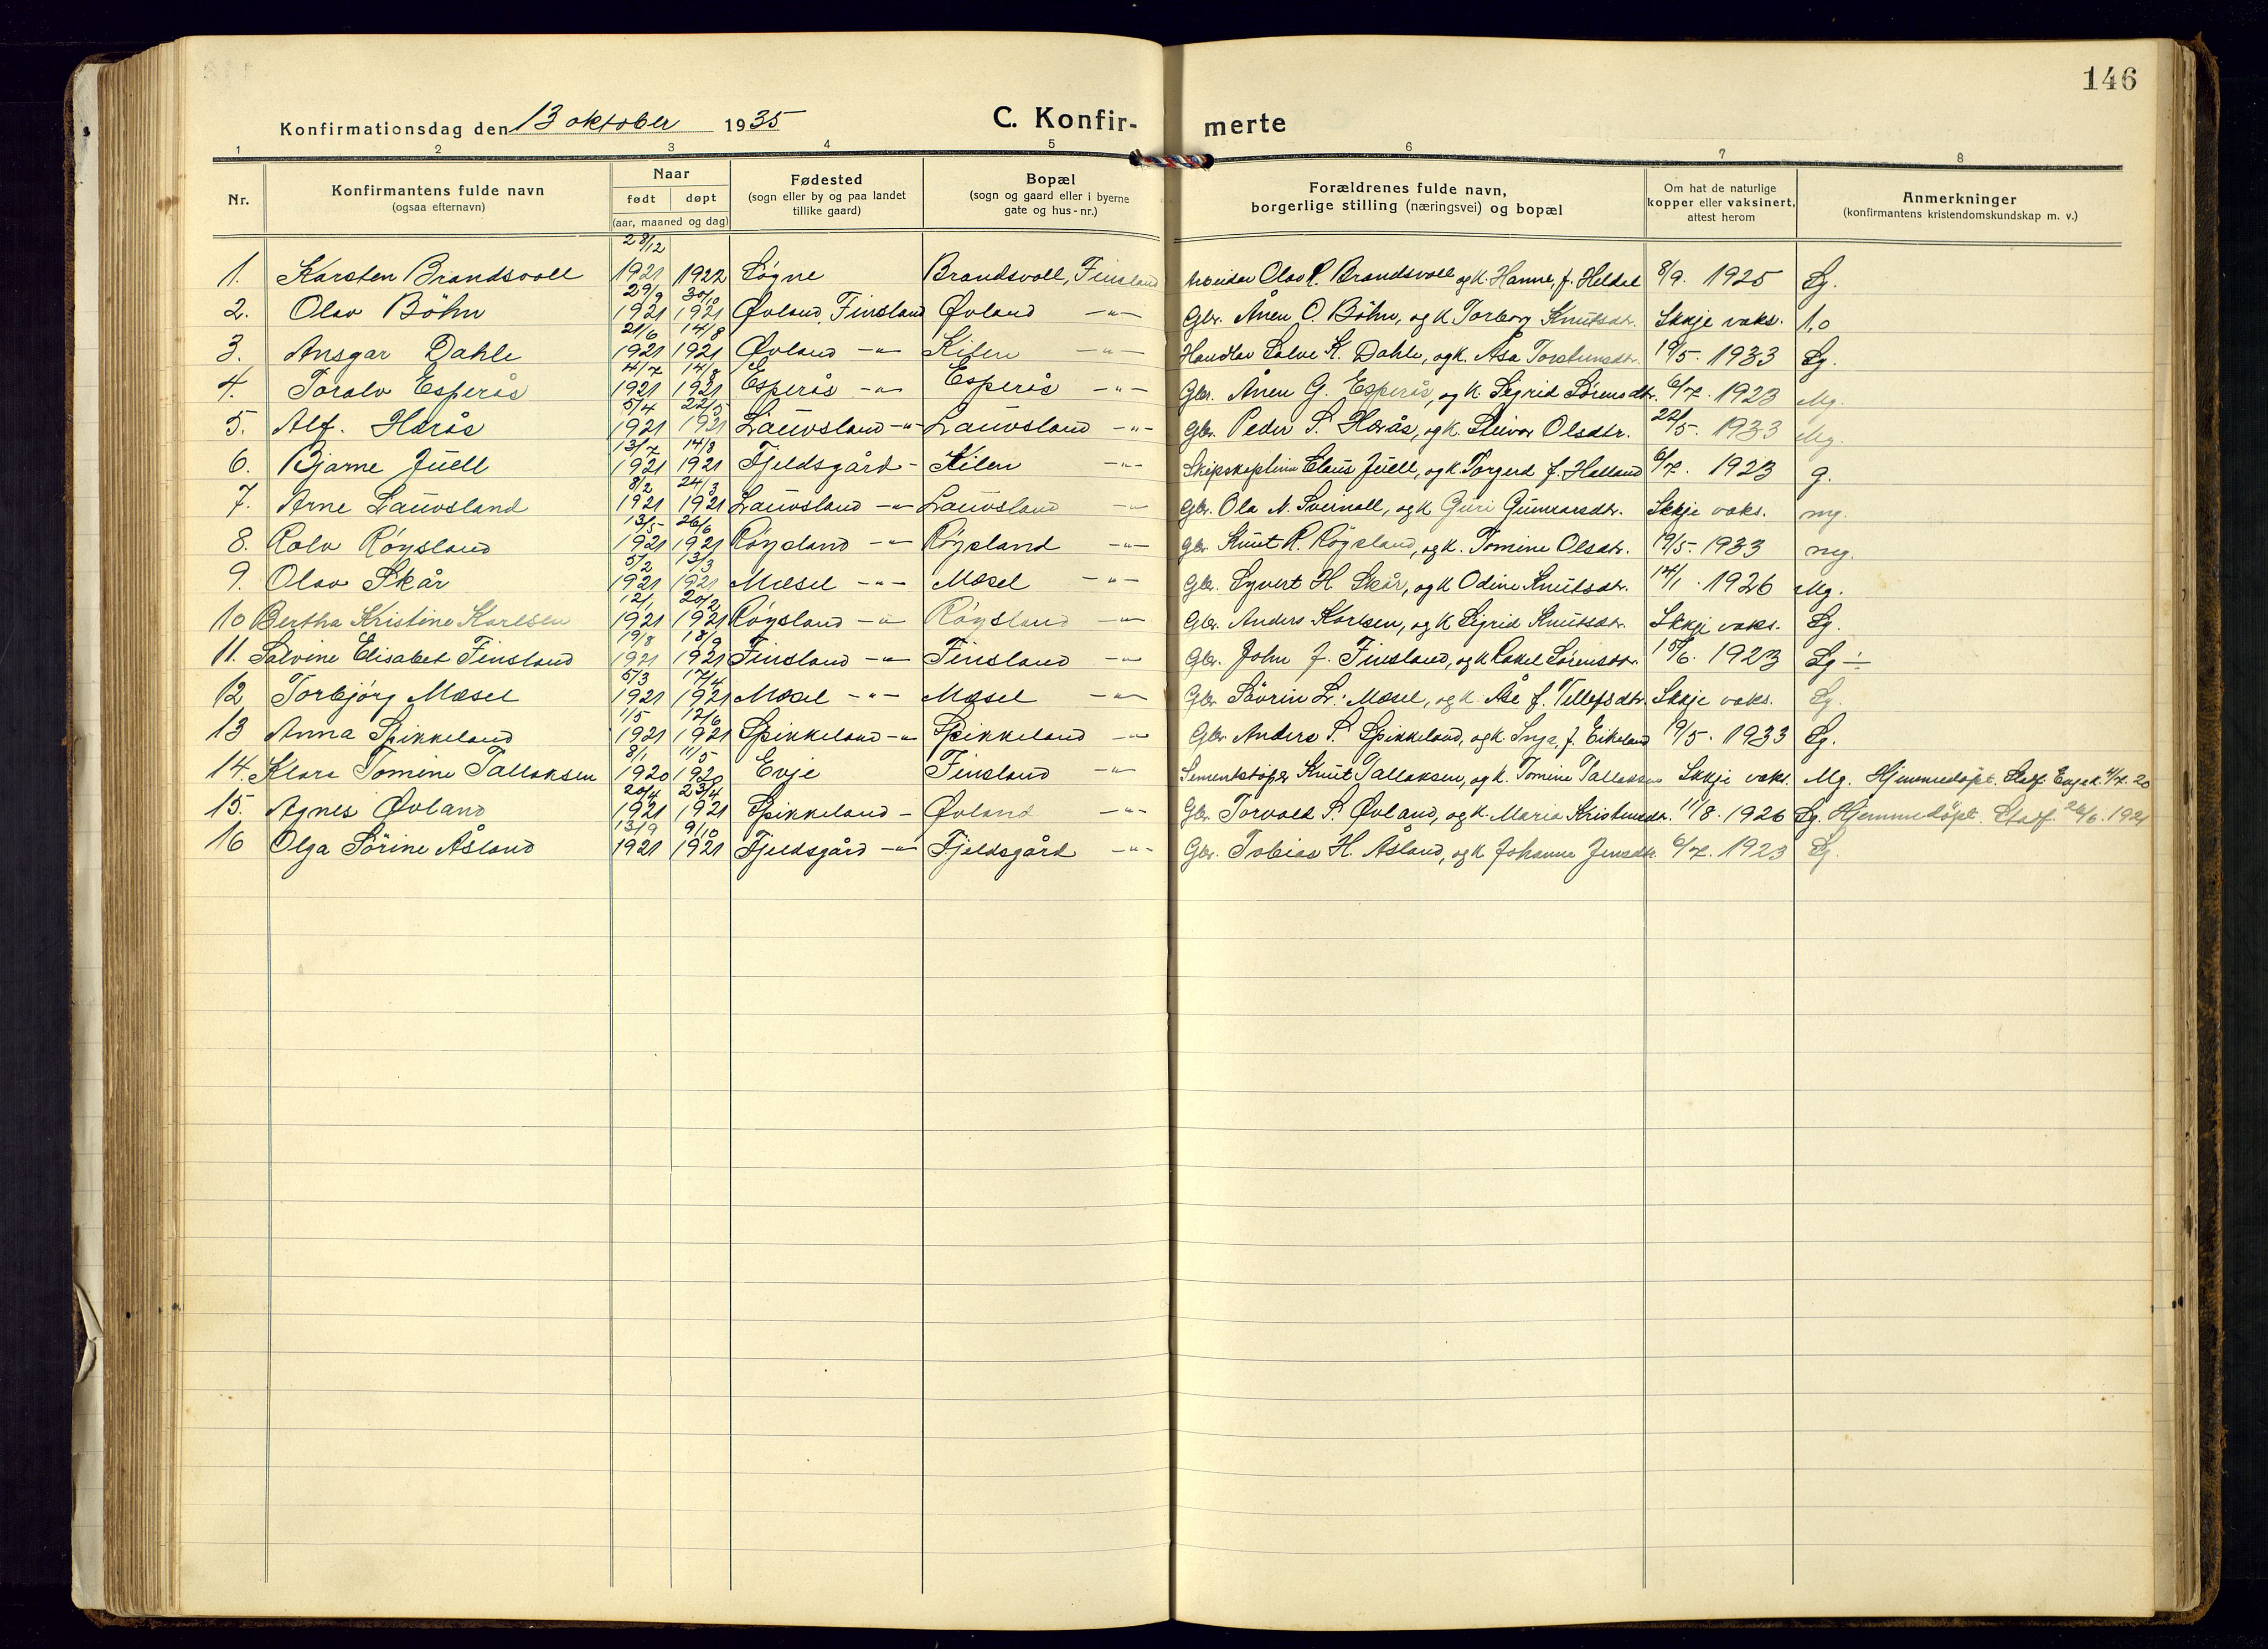 146
Konfirmationsdag den 13 oktober 1935 C. Konfir- merte
1 2 3 4 5 6 7 8
Nr. Konfirmantens fulde navn (ogsaa efternavn) Naar født døpt (aar, maaned og dag) Fødested (sogn eller by og paa landet tillike gaard) Bopæl (sogn og gaard eller i byerne gate og hus-nr.) Forældrenes fulde navn, borgerlige stilling (næringsvei) og bopæl Om hat de naturlige kopper eller vaksinert, attest herom Anmerkninger (konfirmantens kristendomskundskap m. v.)
1. Karsten Brandsvoll 28/12 1921 1922 Søgne Brandsvoll, Finsland Olav P. Brandsvoll og k. Hanne, f. Heldal 8/9. 1925 Sg.
2. Olav Böhn 29/9 1921 30/10 1921 Øvland, Finsland Øvland -"- Gbr. Ånen O. Böhn, og k Torborg Knutsdtr. Ikkje vaks. 1,0
3. Ansgar Dahle 21/6 1921 14/8 1921 Øvland -"- Kilen -"- Handlar Salve K. Dahle, og k. Åsa Torsteinsdtr. 19/5. 1933 Sg.
4. Toralv Esperås 4/7 1921 14/8 1921 Esperås -"- Esperås -"- Gbr. Ånen G. Esperås, og k. Sigrid Sørensdtr. 6/7. 1923 Mg.
5. Alf. Harås 5/4 1921 22/5 1921 Lauvsland -"- Lauvsland -"- Gbr. Peder S. Harås, og k. Steivor Olsdtr. 22/5. 1933 Mg.
6. Bjarne Juell 13/7 1921 14/8 1921 Fjeldsgård - Kilen -"- Skipskaptein Claus Juell, og k. Torgerd f. Halland 6/7. 1923 g.
7. Arne Lauvsland 8/2 1921 24/3 1921 Lauvsland -"- Lauvsland -"- Gbr. Ola N. Sveinall, og k Guri Gunnarsdtr. Ikkje vaks. mg.
8. Rolv Röysland 13/5 1921 26/6 1921 Röysland -"- Röysland -"- Gbr. Knut R. Röysland, og k. Tomine Olsdtr. 19/5. 1933 mg.
9. Olav Skår 5/2 1921 13/3 1921 Mæsel -"- Mæsel -"- Gbr. Syvert H. Skår, og k Odine Knutsdtr. 14/1. 1926 Mg.
10 Bertha Kristine Karlsen 12/1 1921 20/2 1921 Röysland -"- Röysland -"- Gbr. Anders Karlsen, og k Sigrid Knutsdtr. Ikkje vaks. Sg.
11. Salvine Elisabet Finsland 19/8 1921 18/9 1921 Finsland -"- Finsland -"- Gbr. John J. Finsland, og k Rakel Sørensdtr. 15/6. 1923 Sg ÷
12 Torbjörg Mæsel 5/3 1921 17/4 1921 Mæsel -"- Mæsel -"- Gbr. Sövrin L. Mæsel, og k. Åse f. Tellefsdtr. Ikkje vaks. Sg.
13 Anna Spikkeland 1/5 1921 12/6 1921 Spikkeland -"- Spikkeland -"- Gbr. Anders S. Spikkeland, og k. Inga, f. Eikeland 19/5. 1933 Sg.
14. Klara Tomine Tallaksen 8/1 1920 11/5 1920 Evje Finsland -"- Sementstøper Knut Tallaksen, og k. Tomine Tallaksen Ikkje vaks. Mg. Hjemmedöpt. Stadf. Evje k. 4/7. 20
15. Agnes Øvland 20/4 1921 23/4 1921 Spikkeland - Øvland -"- Gbr. Torvald S. Øvland, og k. Maria Kristensdtr. 11/8. 1926 Sg. Hjemmedöpt. Stadf. 26/6. 1921
16 Olga Sörine Åsland 13/9 1921 9/10 1921 Fjeldsgård -"- Fjeldsgård -"- Gbr. Tobias H. Åsland, og k Johanna Jensdtr. 6/7. 1923 Sg.